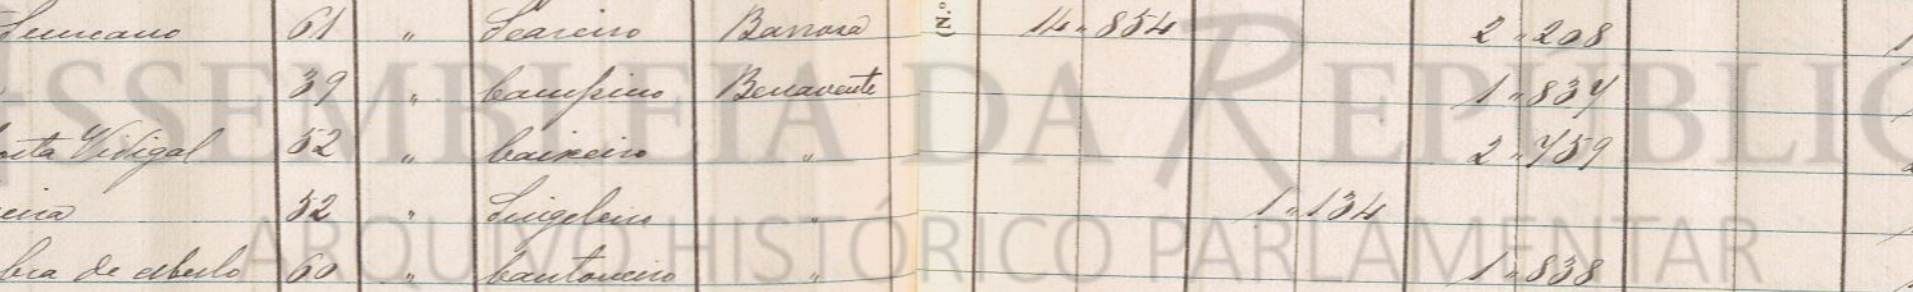 61 " Seareiro Barrosa (N.º 14 " 854 2 " 208
39 " Campino Benavente 1 " 837
Vidigal 52 " Caixeiro " 2 " 759
52 " Singeleiro " 1 " 134
de Abulo 60 " Cantoneiro " 1 " 838
ASSEMBLEIA DA REPÚBLIC
ARQUIVO HISTÓRICO PARLAMENTAR